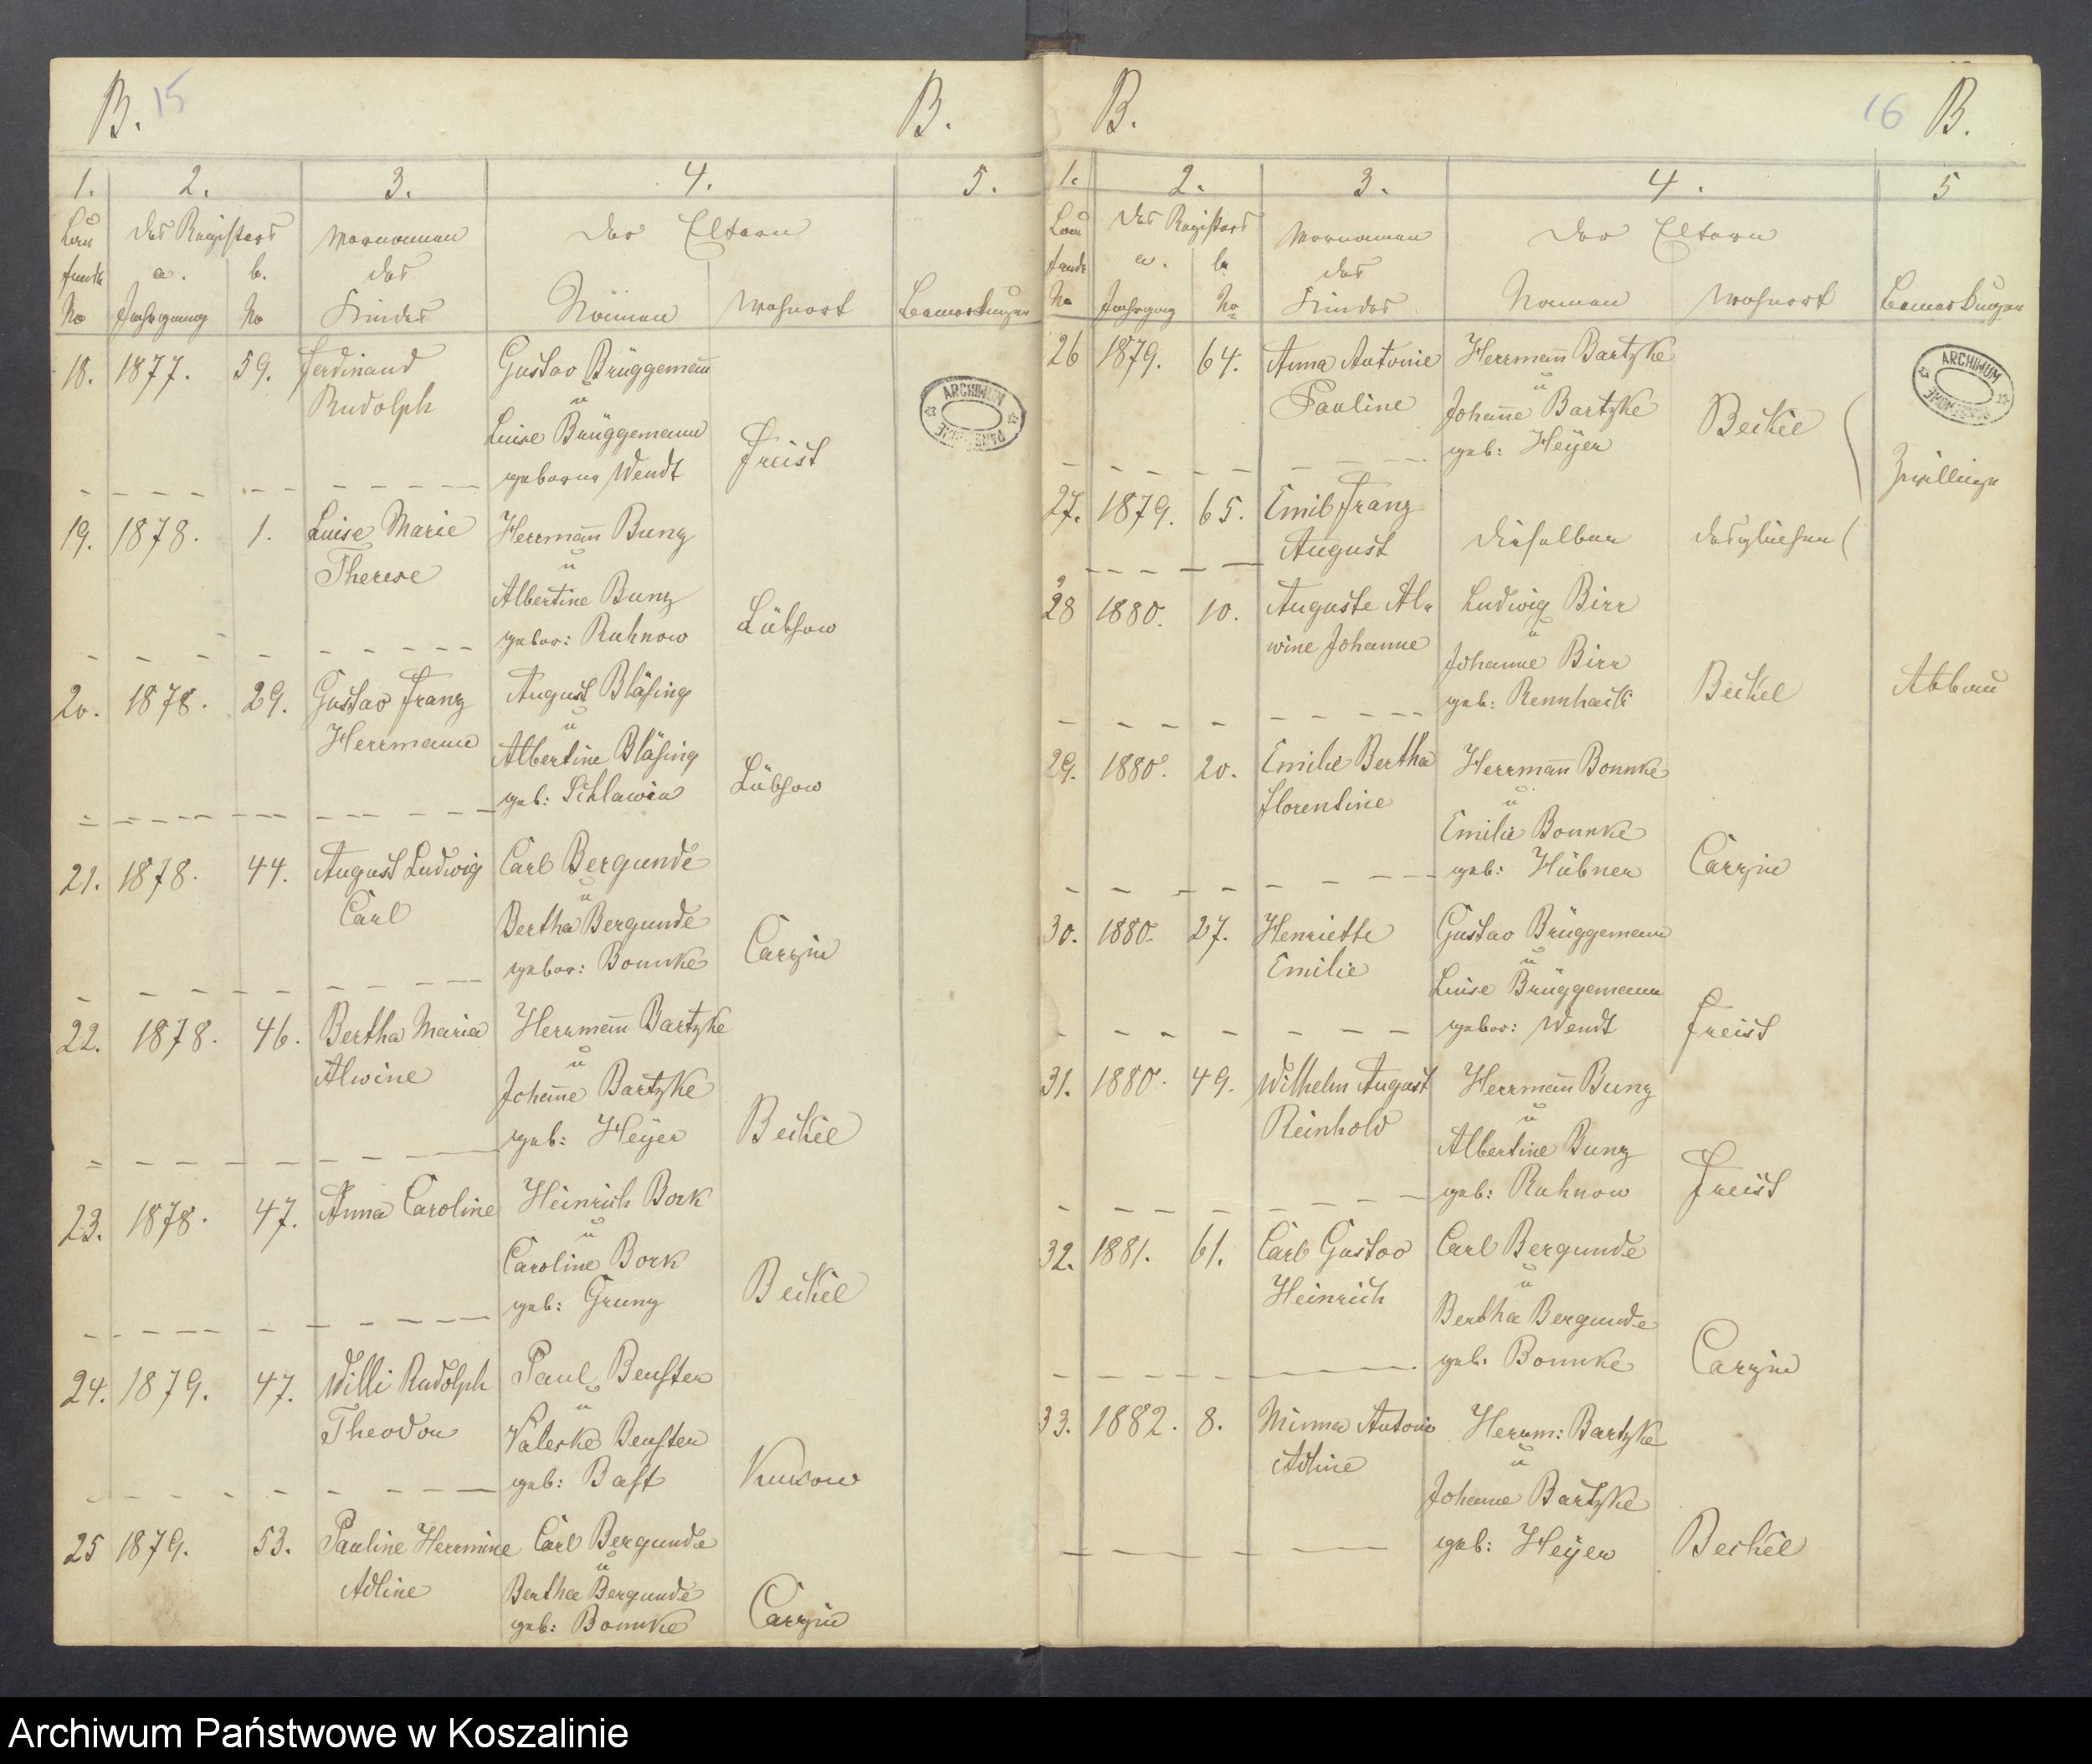 B. 15 B.
1. 2. 3. 4. 5.
Lau des Registers Vornamen Der Eltern
fende a. b. des
No Jahrgang No Kindes Namen Wohnort Bemerkungen
18. 1877. 59. Ferdinand Gustav Brüggemañ
Rudolph u
Luise Brüggemann
geborne Wendt Freist
ARCHIWUM
19. 1878. 1. Luise Marie Herrmañ Bunz
Therese u
Albertine Bunz
gebor: Ruhnow Lübsow
20. 1878. 29. Gustav Franz August Bläsing
Herrmann u
Albertine Bläsing
geb: Schlawin Lübsow
21. 1878. 44. August Ludwig Carl Bergunde
Carl u
Bertha Bergunde
gebor: Bonnke Carzin
22. 1878. 46. Bertha Maria Herrmañ Bartzke
Alwine u
Johañe Bartzke
geb: Heÿer Beckel
23. 1878. 47. Anna Caroline Heinrich Bork
u
Caroline Bork
geb: Grunz Beckel
24. 1879. 47. Willi Rudolph Paul Benster
Theodor u
Valeske Benster
geb: Bast Kussow
25 1879. 53. Pauline Hermine Carl Bergunde
Adline u
Bertha Bergunde
geb: Bonnke Carzin
B. 16 B.
1. 2. 3. 4. 5
Lau des Registers Vornamen Der Eltern
fende a. b. des
No Jahrgang No Kindes Namen Wohnort Bemerkungen
26 1879. 64. Anna Antonie Herrmañ Bartzke
Pauline u
Johañe Bartzke Beckel
geb: Heÿer
ARCHIWUM
Zwillinge
27. 1879. 65. Emil Franz
August Dieselben desgleichen
28 1880. 10. Auguste Al- Ludwig Birr
wine Johanne u
Johanne Birr
geb: Rennhack Beckel Abbau
29. 1880. 20. Emilie Bertha Herrmañ Bonnke
Florentine u
Emilie Bonnke
geb: Hübner Carzin
30. 1880. 27. Henriette Gustav Brüggemann
Emilie u
Luise Brüggemann
gebor: Wendt Freist
31. 1880. 49. Wilhelm August Herrmañ Bunz
Reinhold u
Albertine Bunz
geb: Ruhnow Freist
32. 1881. 61. Carl Gustav Carl Bergunde
Heinrich u
Bertha Bergunde
geb. Bonnke Carzin
33. 1882. 8. Minna Antonie Herrm: Bartzke
Adline u
Johanne Bartzke
geb: Heÿer Beckel
Archiwum Państwowe w Koszalinie